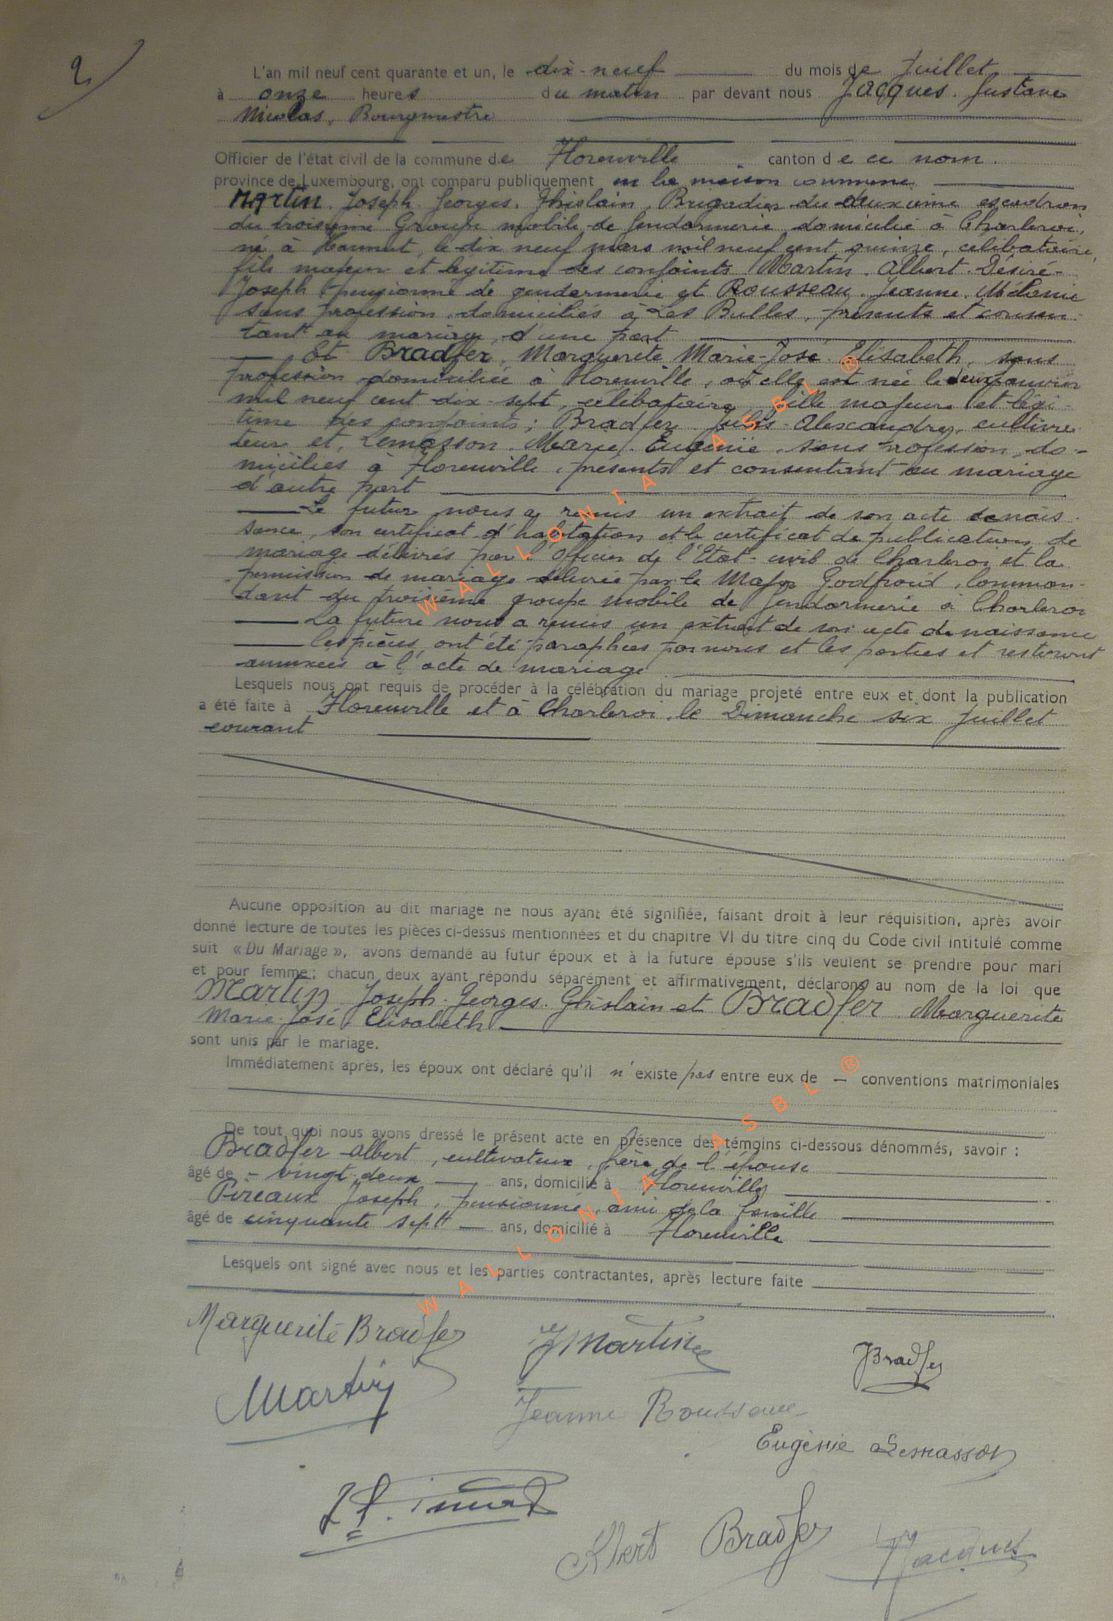 2
L'an mil neuf cent quarante et un, le dix-neuf du mois de Juillet
à onze heures du matin par devant nous Jacques Gustave
Nicolas, Bourgmestre
Officier de l'état civil de la commune de Florenville canton de ce nom
province de Luxembourg, ont comparu publiquement en la maison commune,
Martin Joseph Georges Ghislain Brigadier du deuxième escadron
du troisième Groupe mobile de gendarmerie domicilié à Charleroi,
né à Hannut, le dix neuf mars mil neuf cent quinze, célibataire,
fils majeur et légitime des conjoints Martin Albert Désiré
Joseph pensionné de gendarmerie et Rousseau Jeanne Mélanie
sans profession domiciliés à Les Bulles, présents et consen-
tant au mariage d'une part
Et Bradfer Marguerite Marie-José Elisabeth, sans
profession domiciliée à Florenville, où elle est née le deux janvier
mil neuf cent dix-sept, célibataire fille majeure et légi-
time des conjoints; Bradfer Jules Alexandre, cultiva-
teur et Lemasson Marie Eugénie sans profession, do-
miciliés à Florenville, présents et consentant au mariage
d'autre part
Le futur nous a remis un extrait de son acte de nais
sance, son certificat d'habitation et le certificat de publication de
mariage délivrés par l'Officier de l'Etat-civil de Charleroi et la
permission de mariage délivrée par le Major Godfroid, Comman-
dant du troisième groupe mobile de gendarmerie à Charleroi
La future nous a remis un extrait de son acte de naissance
les pièces ont été paraphées par nous et les parties et resteront
annexées à l'acte de mariage
Lesquels nous ont requis de procéder à la célébration du mariage projeté entre eux et dont la publication
a été faite à Florenville et à Charleroi le Dimanche six Juillet
courant
Aucune opposition au dit mariage ne nous ayant été signifiée, faisant droit à leur réquisition, après avoir
donné lecture de toutes les pièces ci-dessus mentionnées et du chapitre VI du titre cinq du Code civil intitulé comme
suit « Du Mariage », avons demandé au futur époux et à la future épouse s'ils veulent se prendre pour mari
et pour femme; chacun deux ayant répondu séparément et affirmativement, déclarons au nom de la loi que
Martin Joseph Georges Ghislain et Bradfer Marguerite
Marie-José Elisabeth
sont unis par le mariage.
Immédiatement après, les époux ont déclaré qu'il n'existe pas entre eux de – conventions matrimoniales
De tout quoi nous avons dressé le présent acte en présence des témoins ci-dessous dénommés, savoir :
Bradfer Albert, cultivateur, frère de l'épouse
âgé de – vingt-deux – ans, domicilié à Florenville
Pireaux Joseph, pensionné, ami de la famille
âgé de cinquante sept – ans, domicilié à Florenville
Lesquels ont signé avec nous et les parties contractantes, après lecture faite
Marguerite Bradfer
J Martin
JBradfer
Martin
Jeanne Rousseau
Eugénie Lemasson
Albert Bradfer
Jacques
WALLONIA ASBL ®
WALLONIA ASBL ®